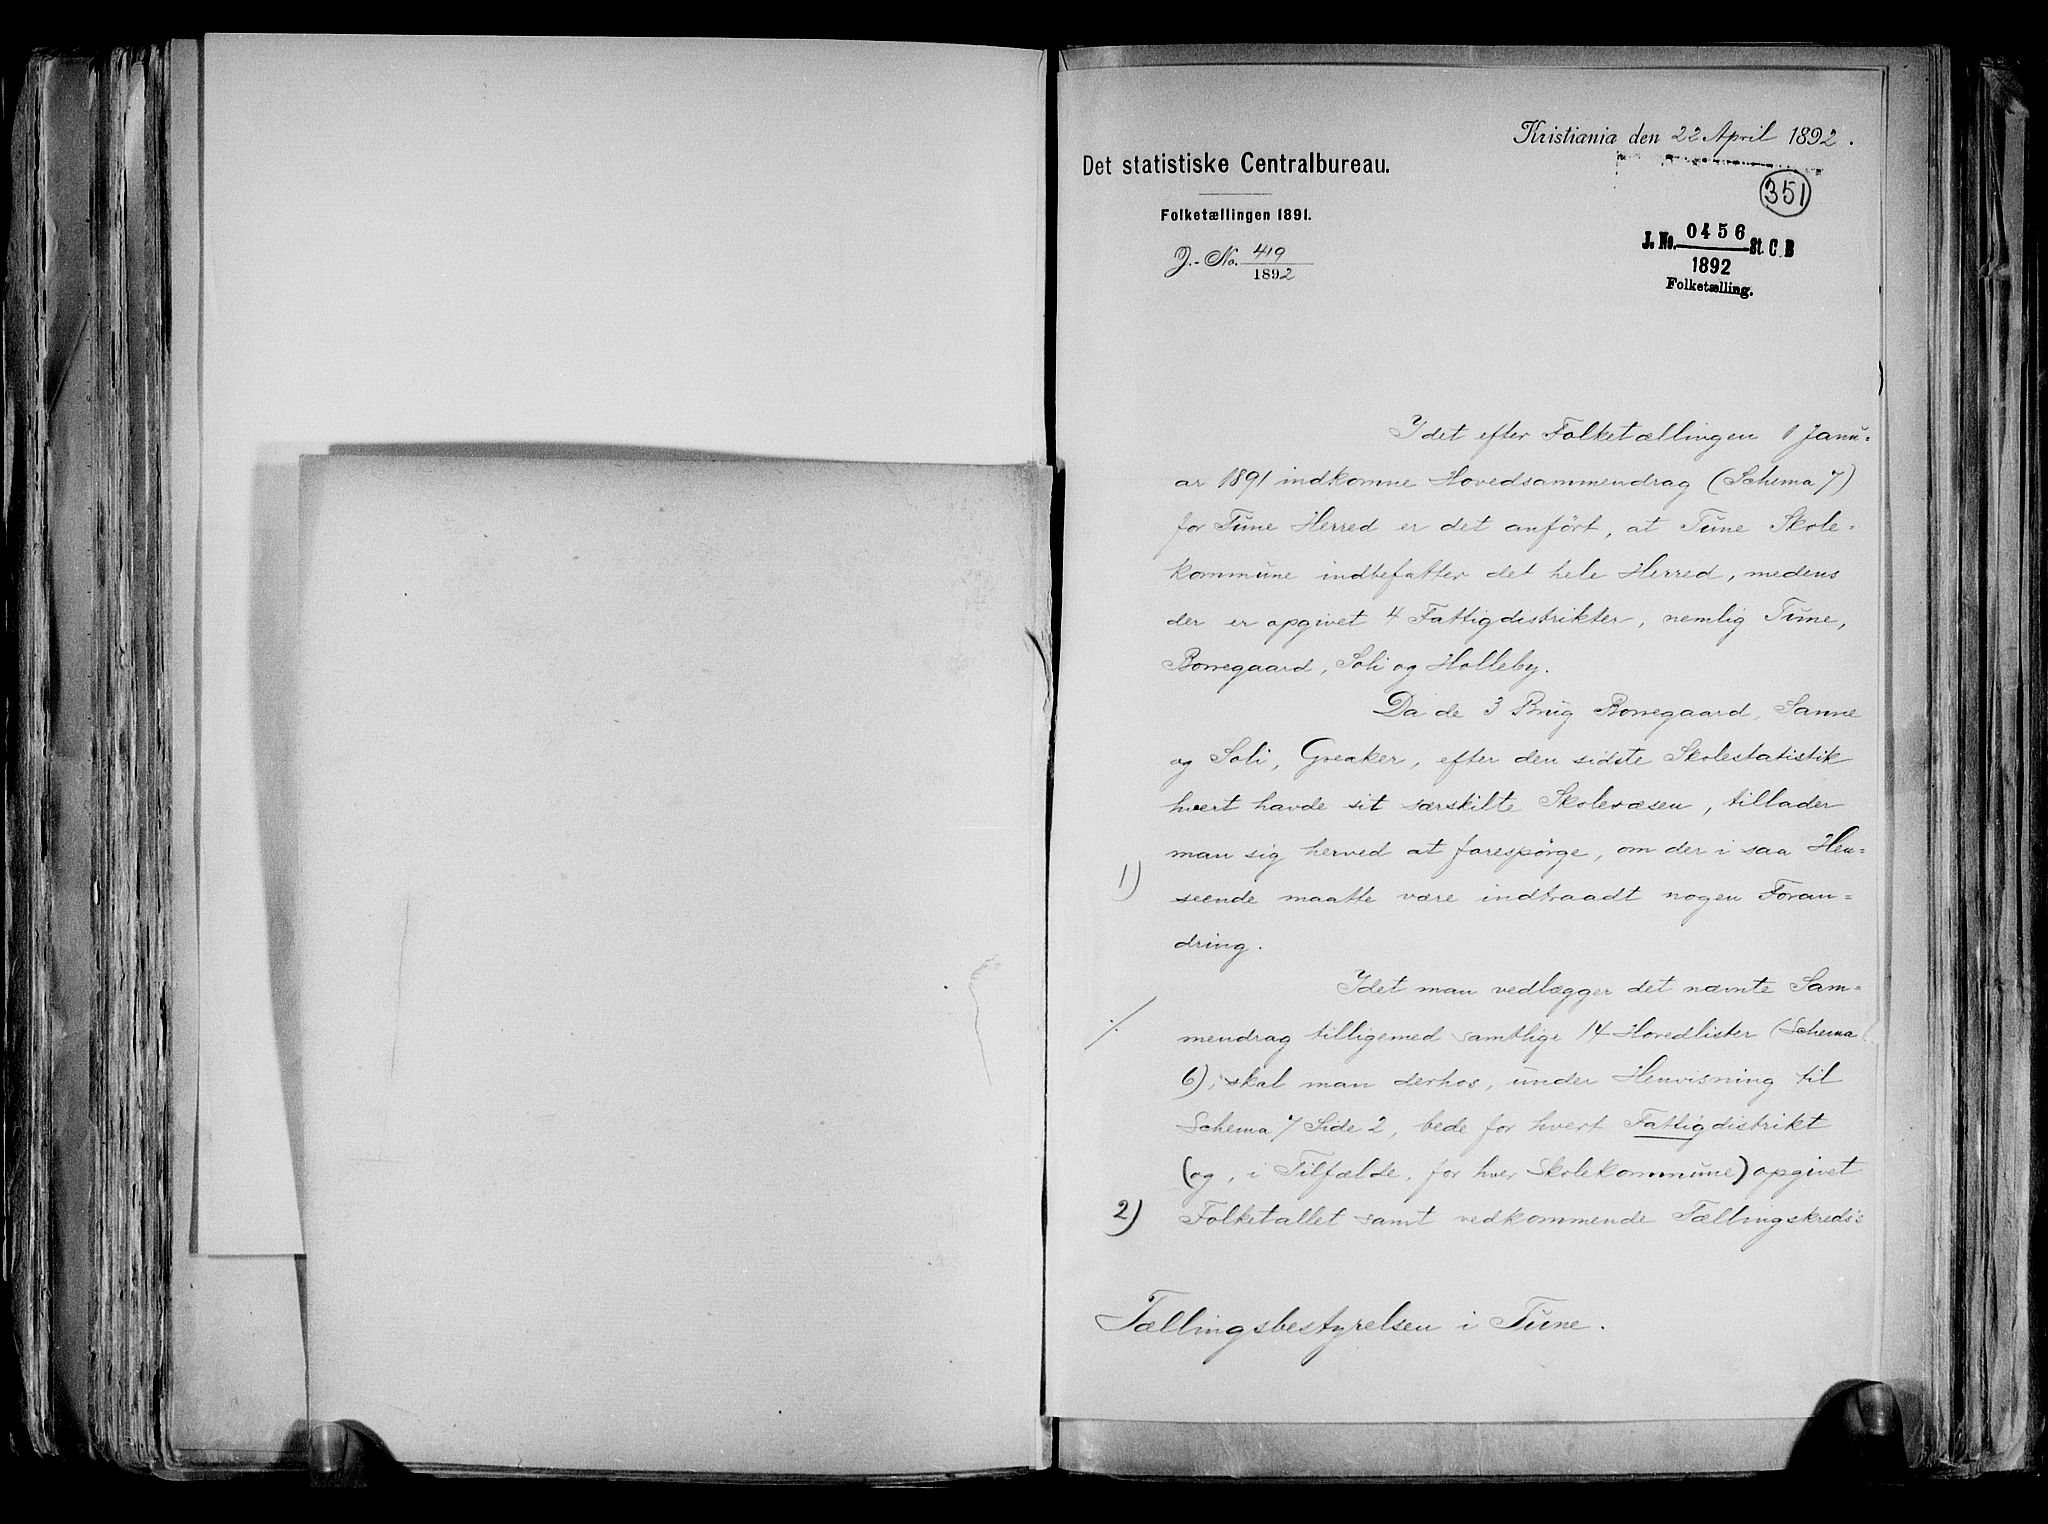 Kristiania den 22 April 1892.
Det statistiske Centralbureau.
351
Folketællingen 1891.
J.-No. 419
1892
J. No. 0456 St. C. B
1892
Folketælling.
I det efter Folketællingen 1 Janu=
ar 1891 indkomne Hovedsammendrag (Schema 7)
for Tune Herred er det anført, at Tune Skole=
kommune indbefatter det hele Herred, medens
der er opgivet 4 Fattigdistrikter, nemlig Tune,
Borregaard, Soli og Holleby.
Da de 3 Brug Borregaard, Sanne
og Soli, Greaker, efter den sidste Skolestatistik
hvert havde sit særskilte Skolevæsen, tillader
man sig herved at forespørge, om der i saa Hen=
1) seende maatte være indtraadt nogen Foran=
dring.
Idet man vedlægger det nævnte Sam=
mendrag tilligemed samtlige 14 Hovedlister (Schema
6), skal man derhos, under Henvisning til
Schema 7 Side 2, bede for hvert Fattigdistrikt
(og, i Tilfælde, for hver Skolekommune) opgivet
2) Folketallet samt vedkommende Tællingskreds's
Tællingsbestyrelsen i Tune.